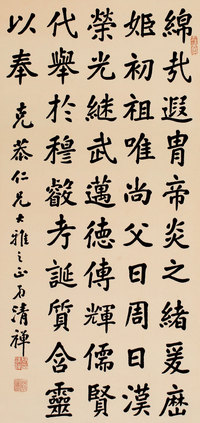 綿哉遐胄帝炎之緒爰歷
姬初祖唯尚父曰周曰漢
榮光継武邁德傳輝儒賢
代舉於穆叡考誕質含靈
以奉
克恭仁兄大雅之正 清禪